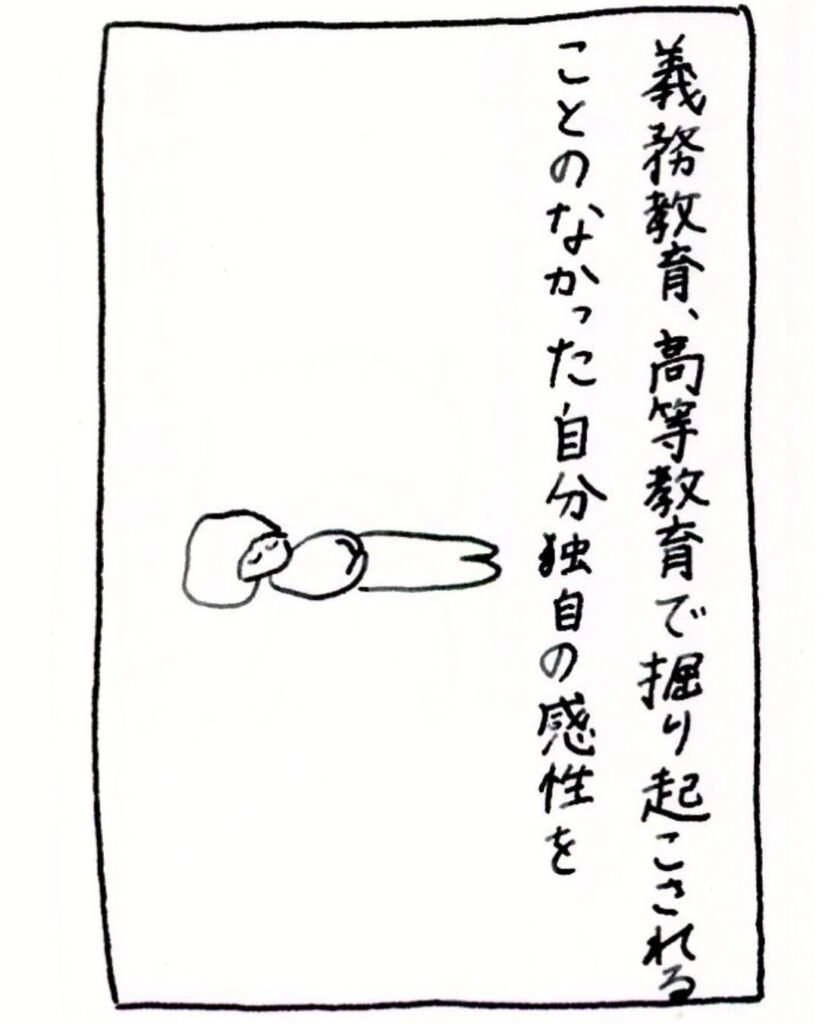 義務教育、高等教育で掘り起こされる
ことのなかった自分独自の感性を